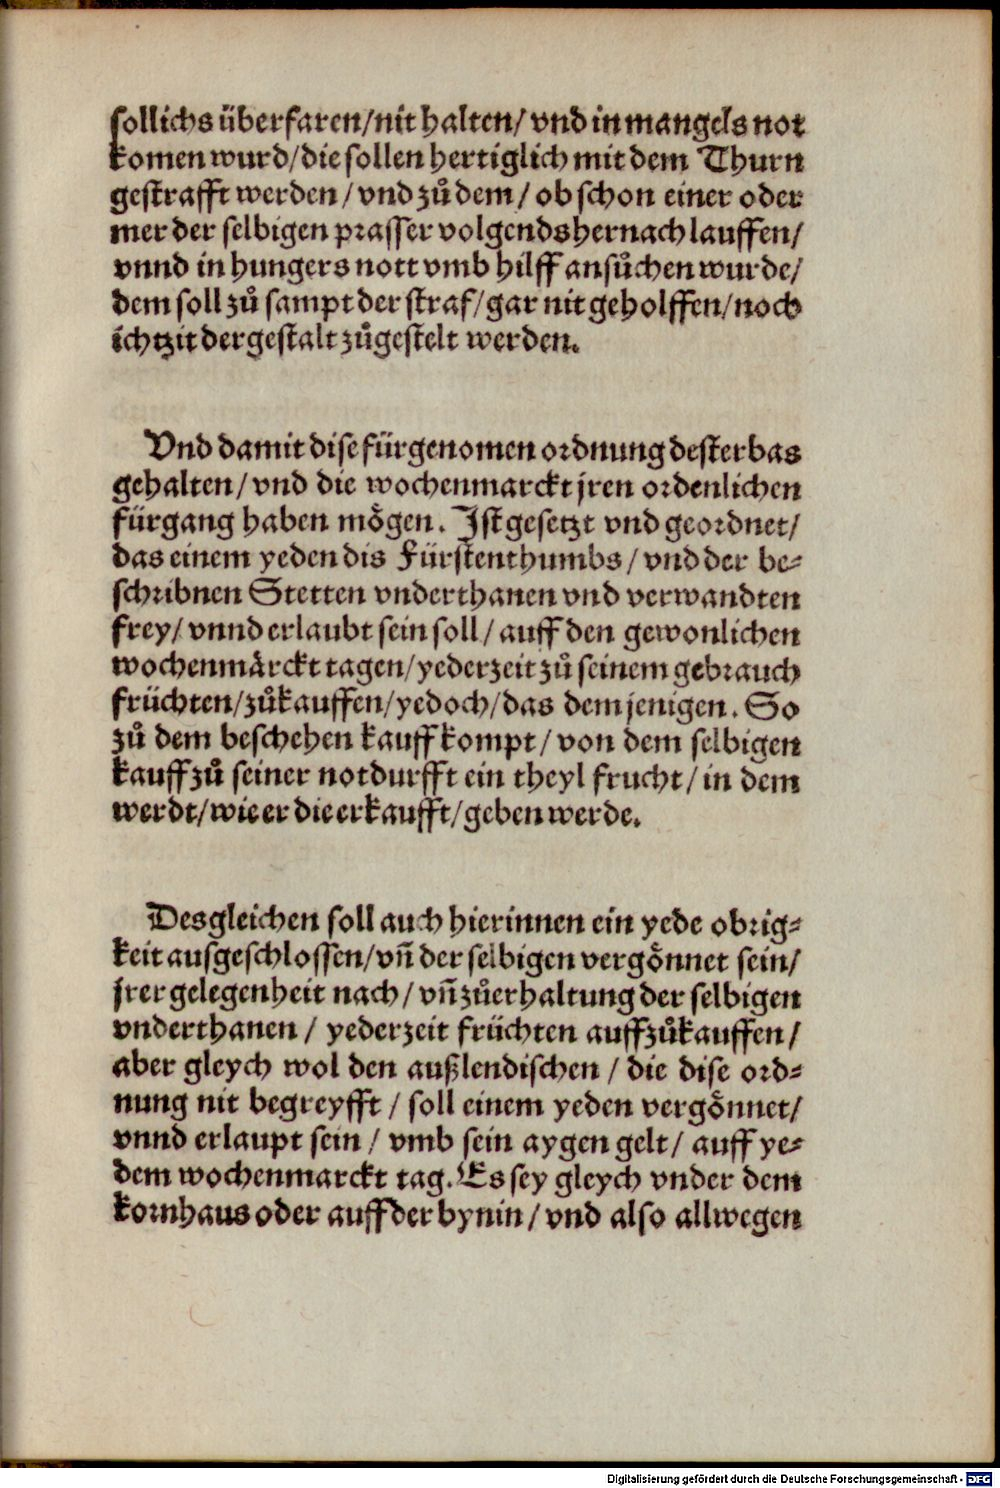 sollichs überfaren/nit halten/ vnd in mangels not
komen wurd/die sollen hertiglich mit dem Thurn
gestrafft werden/ vnd zů dem/ ob schon einer oder
mer der selbigen prasser volgends hernach lauffen/
vnnd in hungers nott vmb hilff ansůchen wurde/
dem soll zů sampt der straf/gar nit geholffen/noch
ichtzit der gestalt zůgestelt werden.
Vnd damit dise fürgenomen ordnung desterbas
gehalten/ vnd die wochenmarckt jren ordenlichen
fürgang haben mögen. Ist gesetzt vnd geordnet/
das einem yeden dis Fürstenthumbs/ vnd der be-
schribnen Stetten vnderthanen vnd verwandten
frey/ vnnd erlaubt sein soll/ auff den gewonlichen
wochenmärckt tagen/yederzeit zů seinem gebrauch
früchten/zůkauffen/yedoch/das dem jenigen. So
zů dem beschehen kauff kompt/ von dem selbigen
kauff zů seiner notdurfft ein theyl frucht/ in dem
werdt/wie er die erkaufft/geben werde.
Desgleichen soll auch hierinnen ein yede obrig-
keit ausgeschlossen/vñ der selbigen vergönnet sein/
jrer gelegenheit nach/ vñ zůerhaltung der selbigen
vnderthanen/ yederzeit früchten auffzůkauffen/
aber gleych wol den außlendischen/ die dise ord-
nung nit begreyfft/ soll einem yeden vergönnet/
vnnd erlaupt sein/ vmb sein aygen gelt/ auff ye-
dem wochenmarckt tag. Es sey gleych vnder dem
kornhaus oder auff der bynin/ vnd also allwegen
Digitalisierung gefördert durch die Deutsche Forschungsgemeinschaft - DFG